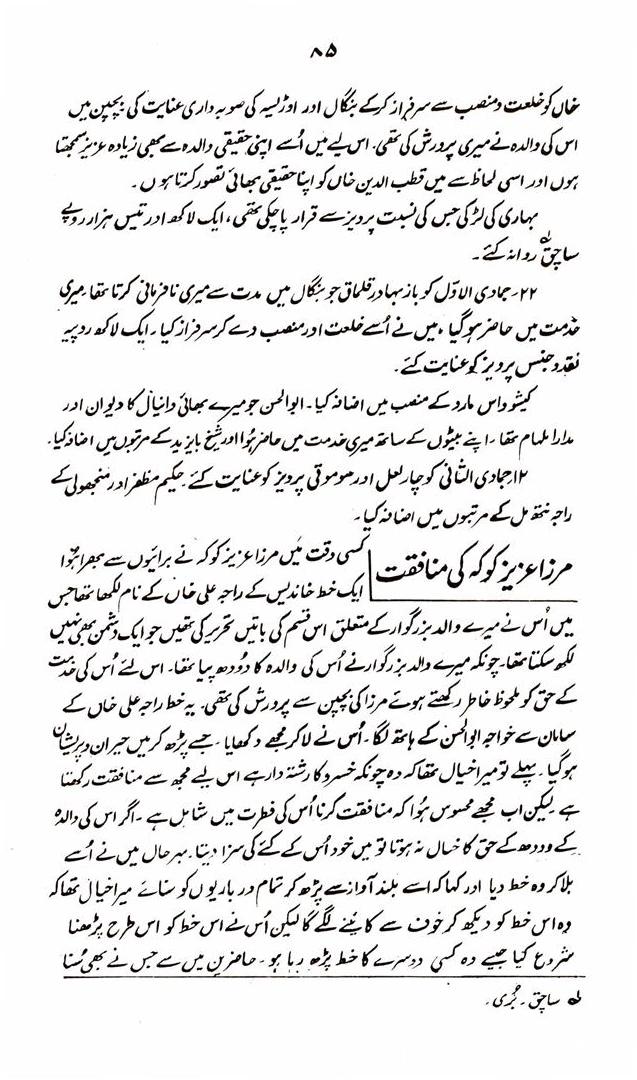 ۸۵
خاں کو خلعت و منصب سے سرفراز کرکے بنگال اور اوڑلیسہ کی صوبہ داری عنایت کی بچپن میں
اس کی والدہ نے میری پرورش کی تھی۔ اس لیے میں اُسے اپنی حقیقی والدہ سے بھی زیادہ عزیز سمجھتا
ہوں اور اسی لحاظ سے میں قطب الدین خاں کو اپنا حقیقی بھائی تصور کرتا ہوں۔
بہاری کی لڑکی جس کی نسبت پرویز سے قرار پا چکی تھی، ایک لاکھ اور تیس ہزار روپے
ساچق لہ روانہ کئے۔
۲۲۔ جمادی الاوّل کو باز بہادر قلماق جو بنگال میں مدت سے میری نافرمانی کرتا تھا۔ میری
خدمت میں حاضر ہو گیا، میں نے اُسے خلعت اور منصب دے کر سرفراز کیا۔ ایک لاکھ روپیہ
نقد و جنس پرویز کو عنایت کئے۔
کیشو داس مارد کے منصب میں اضافہ کیا۔ ابوالحسن جو میرے بھائی دانیال کا دیوان اور
مدارالمہام تھا۔ اپنے بیٹوں کے ساتھ میری خدمت میں حاضر ہُوا اور شیخ بایزید کے مرتبوں میں اضافہ کیا۔
۱۲؍ جمادی الثانی کو چار لعل اور سو موتی پرویز کو عنایت کئے۔ حکیم مظفر اور منجھولی کے
راجہ نتھ مل کے مرتبوں میں اضافہ کیا۔
مرزا عزیز کوکہ کی منافقت
کسی وقت میں مرزا عزیز کوکہ نے برائیوں سے بھرا ہُوا
ایک خط خاندیس کے راجہ علی خاں کے نام لکھا تھا جس
میں اُس نے میرے والد بزرگوار کے متعلق اس قسم کی باتیں تحریر کی تھیں جو ایک دشمن بھی نہیں
لکھ سکتا تھا۔ چونکہ میرے والد بزرگوار نے اُس کی والدہ کا دودھ پیا تھا۔ اس لئے اُس کی خدمت
کے حق کو ملحوظ خاطر رکھتے ہوئے مرزا کی بچپن سے پرورش کی تھی۔ یہ خط راجہ علی خاں کے
سامان سے خواجہ ابوالحسن کے ہاتھ لگا۔ اُس نے لا کر مجھے دکھایا۔ جسے پڑھ کر میں حیران و پریشان
ہو گیا۔ پہلے تو میرا خیال تھا کہ وہ چونکہ خسرو کا رشتہ دار ہے اس لیے مجھ سے منافقت رکھتا
ہے لیکن اب مجھے محسوس ہُوا کہ منافقت کرنا اُس کی فطرت میں شامل ہے۔ اگر اس کی والدہ
کے دودھ کے حق کا خیال نہ ہوتا تو میں خود اُس کے کئے کی سزا دیتا۔ بہر حال میں نے اُسے
بلا کر وہ خط دیا اور کہا کہ اسے بلند آواز سے پڑھ کر تمام درباریوں کو سنائے میرا خیال تھا کہ
وہ اس خط کو دیکھ کر خوف سے کانپنے لگے گا لیکن اُس نے اس خط کو اس طرح پڑھنا
شروع کیا جیسے وہ کسی دوسرے کا خط پڑھ رہا ہو۔ حاضرین میں سے جس نے بھی سُنا
لہ ساچق۔ بُری۔